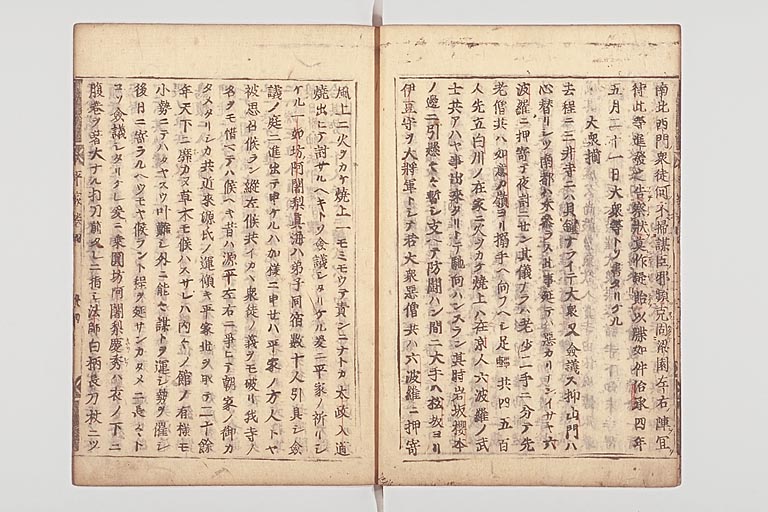 南北西門衆徒何不掃謀臣邪類
五月二十一日大衆等トソ書タリケル
大衆揃
去程ニ三井寺ニハ貝鐘ナラシテ大衆又僉議ス抑山門ハ
心替リシツ南都ハ未参ラス此事延テハ悪カリナンイサヤ六
波羅ニ押寄テ夜討ニセン其儀ナラハ老少二手ニ分テ先
老僧共ハ如意カ嶺ヨリ搦手ヘ向フヘシ足軽共四五百
人先立白川ノ在家ニ火ヲカケ焼上ハ在京人六波羅ノ武
士共アハヤ事出来タリトテ馳向ハンスラン其時岩坂櫻本
ノ邊ニ引懸テ暫シ支ヘテ防闘ハン間ニ大手ハ松坂ヨリ
伊豆守ヲ大将軍トシテ若大衆悪僧共ハ六波羅ニ押寄
風上ニ火ヲカケ焼上一モミモウテ責ンニナトカ太政入道
焼出シテ討サルヘキトソ僉議シタリケル爰ニ平家ノ祈リシ
ケル一如坊阿闍梨真海ハ弟子同宿数十人引具シ僉
議ノ庭ニ進出テ申ケルハ加様ニ申セハ平家ノ方人トヤ
被思召候ラン縦左候共イカヘカ衆徒ノ義ヲモ破リ我寺ノ
名ヲモ惜ヘテハ候ヘキ昔ハ源平左右ニ争ヒテ朝家ノ御カ
タメタリシカ共近来源氏ノ運傾キ平家世ヲ取テ二十餘
年天下ニ靡カヌ草木モ候ハスサレハ内々ノ館ノ有様モ
小勢ニテハタヤスウ叶難シ外ニ能々謀トヲ運シ勢ヲ催シ
後日ニ寄ラルヘウモヤ候ラント程ヲ延サンカタメニ長々ト
コソ僉議シタリケレ爰ニ乗圓坊阿闍梨慶秀ハ衣ノ下ニ
腹巻ヲ著大ナル打刀前ダレニ指シ法師白柄長刀杖ニツ